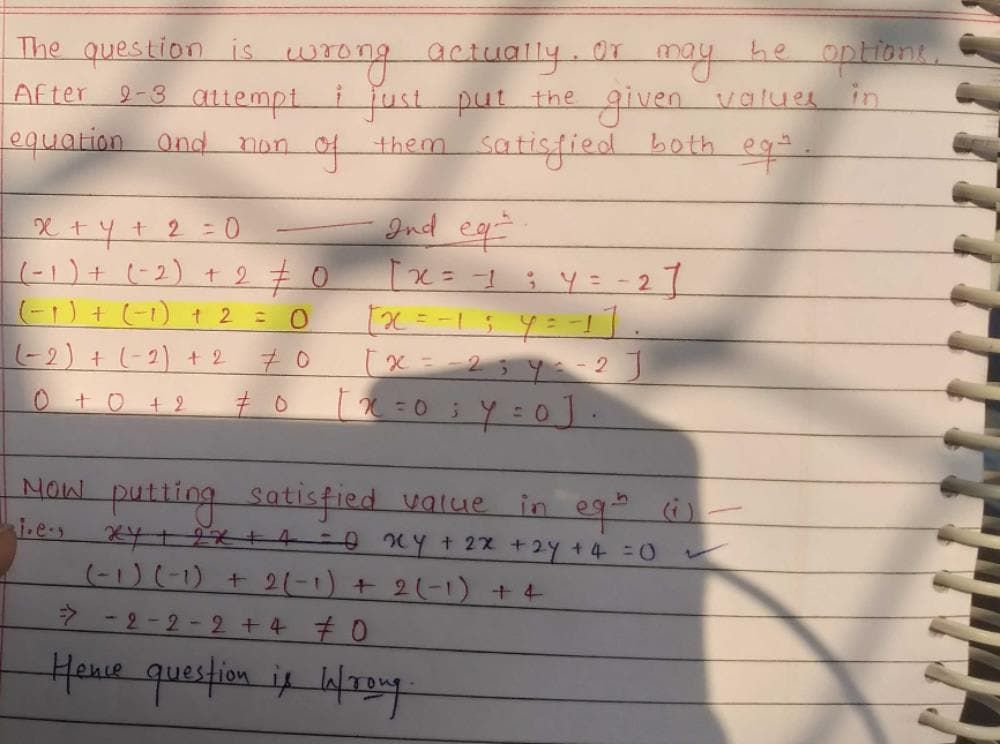 The question is wrong actually. or may be options.
After 2-3 attempt i just put the given values in
equation and non of them satisfied both eqⁿ.
x + y + 2 = 0 —— 2nd eqⁿ
(-1) + (-2) + 2 ≠ 0 [x = -1 ; y = -2]
(-1) + (-1) + 2 = 0 [x = -1 ; y = -1].
(-2) + (-2) + 2 ≠ 0 [x = -2 ; y = -2]
0 + 0 + 2 ≠ 0 [x = 0 ; y = 0].
Now putting satisfied value in eqⁿ (i) —
i.e., xy + 2x + 4 = 0 xy + 2x + 2y + 4 = 0 ✓
(-1)(-1) + 2(-1) + 2(-1) + 4
⇒ -2 - 2 - 2 + 4 ≠ 0
Hence question is Wrong.